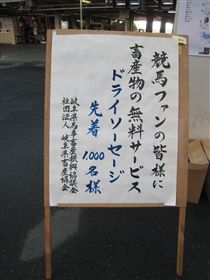 競馬ファンの皆様に
畜産物の無料サービス
ドライソーセージ
先着 1,000名様
岐阜県馬事畜産振興協議会
社団法人 岐阜県畜産協会